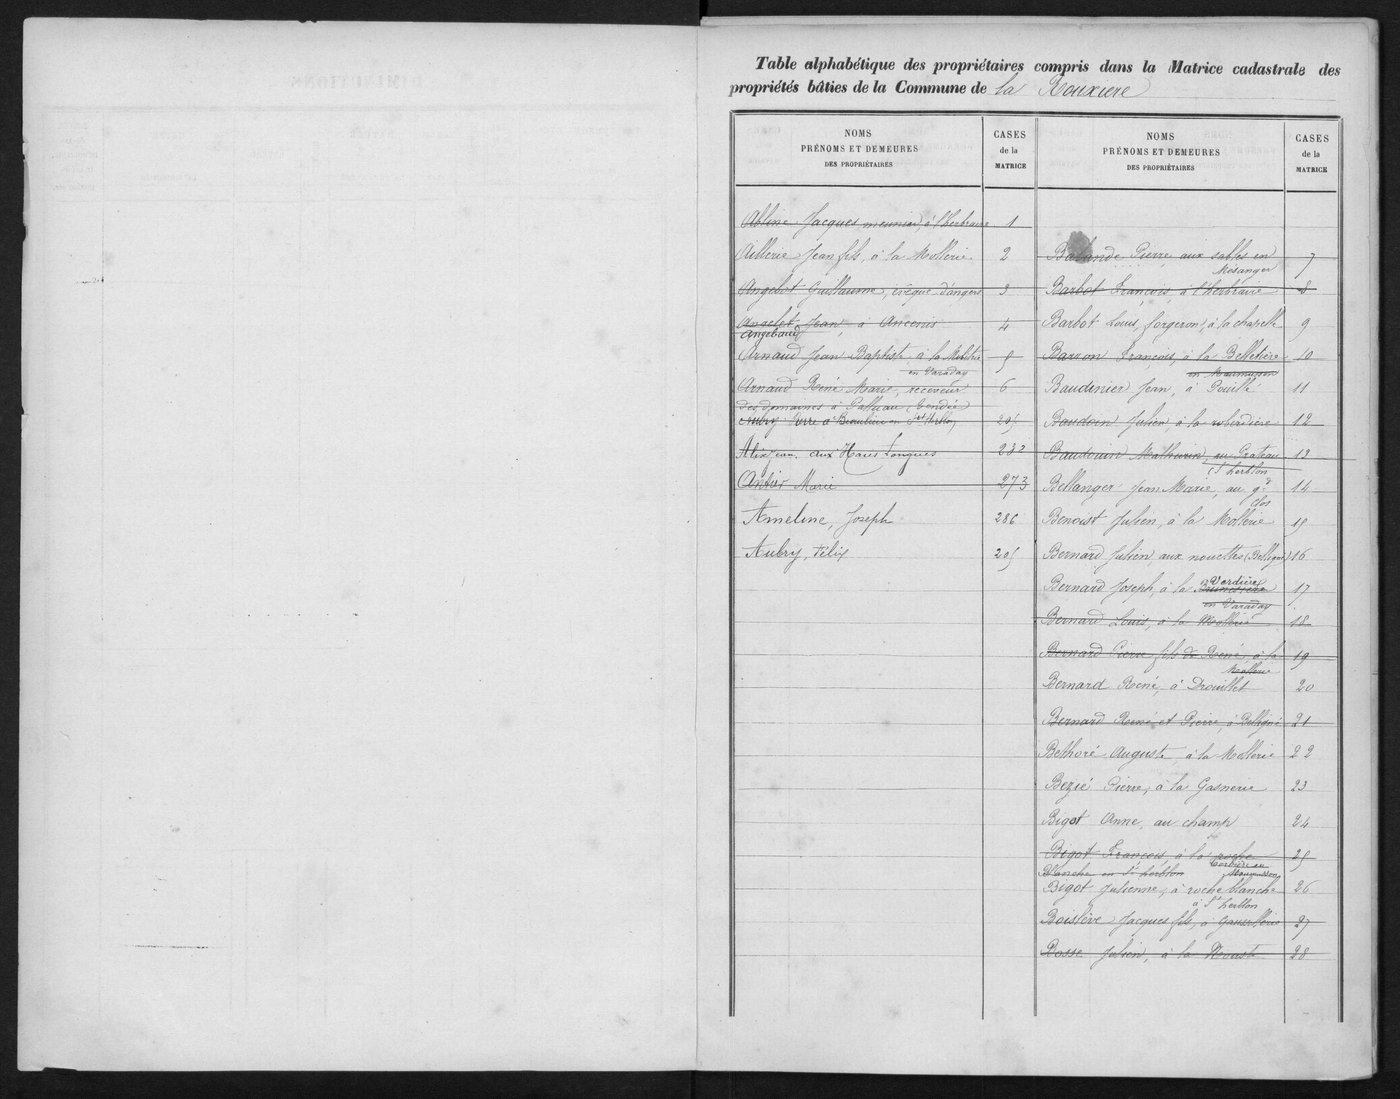 Table alphabétique des propriétaires compris dans la Matrice cadastrale des
propriétés bâties de la Commune de la Rouxière
NOMS
PRÉNOMS ET DEMEURES
DES PROPRIÉTAIRES
CASES
de la
MATRICE
Abline Jacques meunier, à l'herbraire 1
Aillerie Jean fils, à la Mollerie 2
Angebot Guillaume, évêque d'angers 3
Angelot Jean, à Ancenis 4
Angebaud
Arnaud Jean Baptiste à la 5
en Varaday
Arnaud René Marie, receveur 6
des domaines à Palluau, Vendée
Aubry Pierre à Beaulieu en St Herblon 205
Alix Jean, aux Haies Longues 232
Antier Marie 273
Ameline, Joseph 286
Aubry, Félix 205
NOMS
PRÉNOMS ET DEMEURES
DES PROPRIÉTAIRES
CASES
de la
MATRICE
Pierre aux sables en 7
Mesanger
Barbot François, à l'herbraire 8
Barbot Louis, forgeron, à la chapelle 9
Barron François, à la Belletière 10
en Maumusson
Baudinier Jean, à Pouillé 11
Baudoin Julien à la roberdiere 12
Baudouin Mathurin, au Prateau 13
St herblon
Bellanger Jean Marie, au gd 14
clos
Benoist Julien, à la Mollerie 15
Bernard Julien, aux nouettes (Belligné) 16
Verdière
Bernard Joseph, à la 17
en Varaday
Bernard Louis, à la Mollerie 18
Bernard Pierre fils de René, à la 19
Mollerie
Bernard René, à Drouillet 20
Bernard René et Pierre, à Belligné 21
Bethoré Auguste, à la Mollerie 22
Bezié Pierre, à la Gasnerie 23
Bigot Anne, au champ 24
Bigot François, à la roche 25
blanche en St herblon en Maumusson
Bigot Julienne, à roche blanche 26
à St herblon
Boislève Jacques fils, à 27
Bosse Julien, à la 28